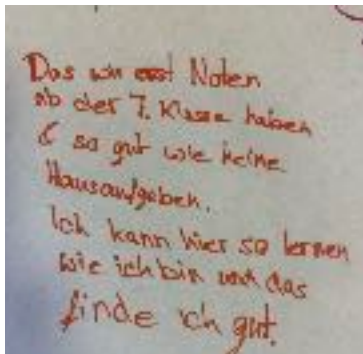 Das wir erst Noten
ab der 7. Klasse haben
& so gut wie keine
Hausaufgaben.
Ich kann hier so lernen
wie ich bin und das
finde ich gut.